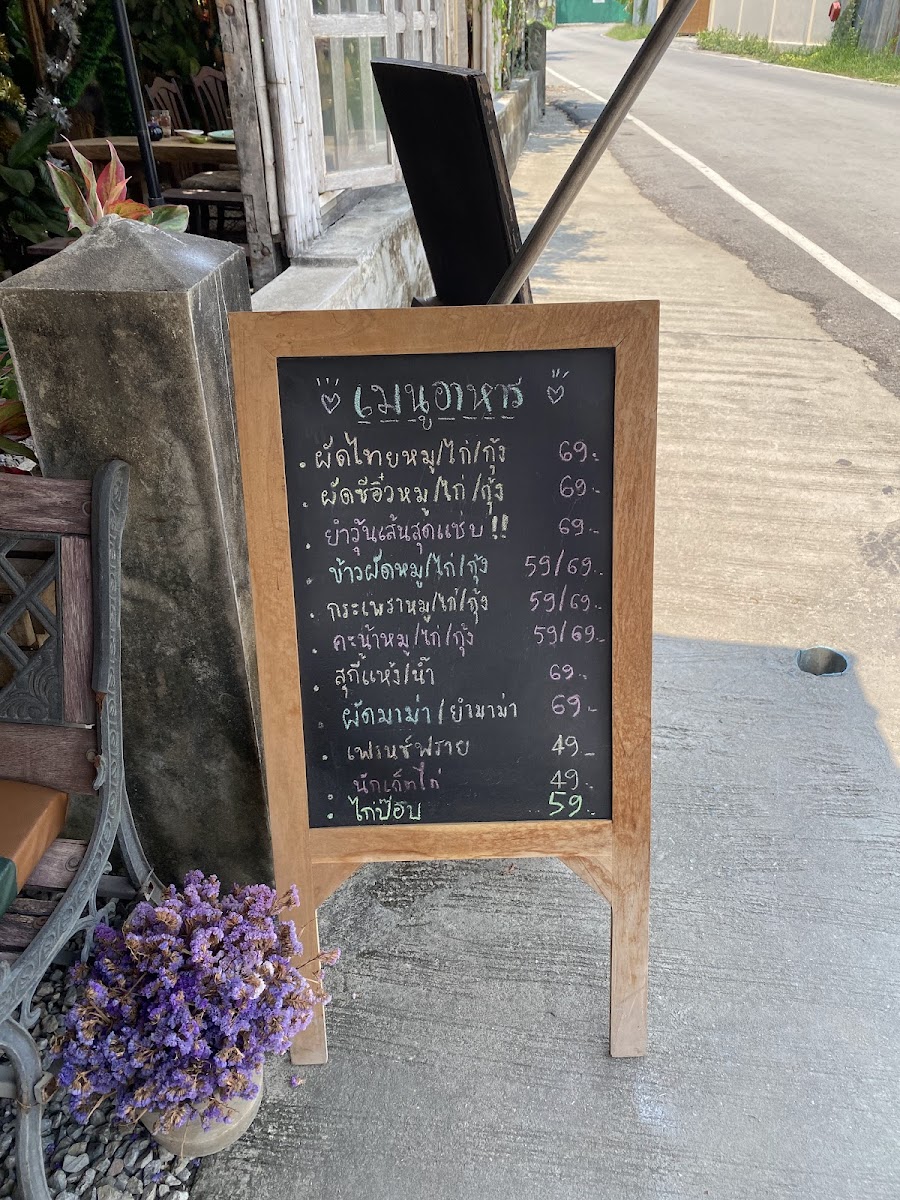 เมนูอาหาร
. ผัดไทยหมู/ไก่/กุ้ง 69.-
. ผัดซีอิ๋วหมู/ไก่/กุ้ง 69.-
. ยำวุ้นเส้นสุดแซ่บ!! 69.-
. ข้าวผัดหมู/ไก่/กุ้ง 59/69.-
. กระเพราหมู/ไก่/กุ้ง 59/69.-
. คะน้าหมู/ไก่/กุ้ง 59/69.-
. สุกี้แห้ง/น้ำ 69.-
. ผัดมาม่า/ยำมาม่า 69.-
. เฟรนช์ฟราย 49.-
. นักเก็ตไก่ 49.-
. ไก่ป๊อบ 59.-